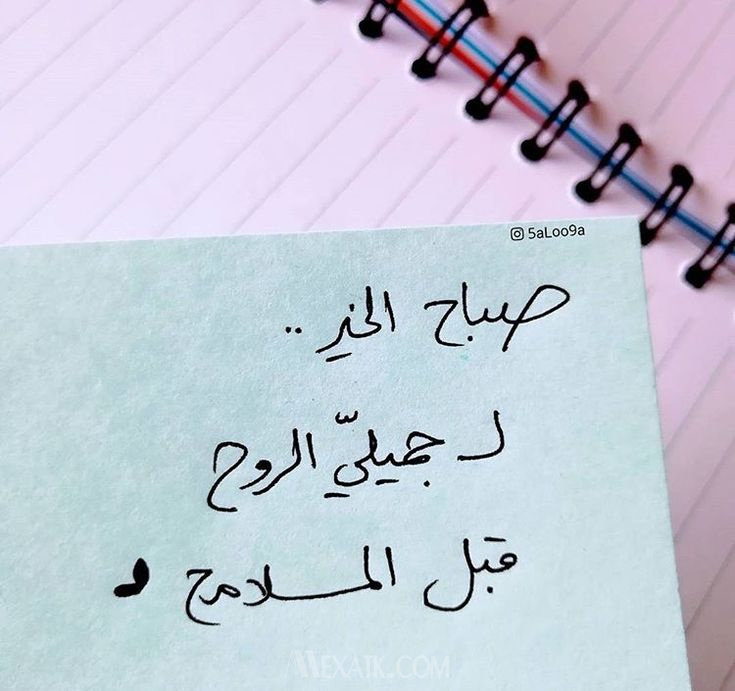 5aLoo9a
صباح الخير ..
لـ جميليّ الروح
قبل الملامح
WEXAIK.COM